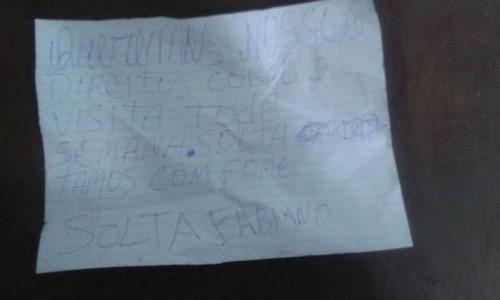 Queremans NOSSOS
DIREITOS
VISITA TODA
SEMANA. SOLTA
TAMOS COM FOME
SOLTA FABIANO